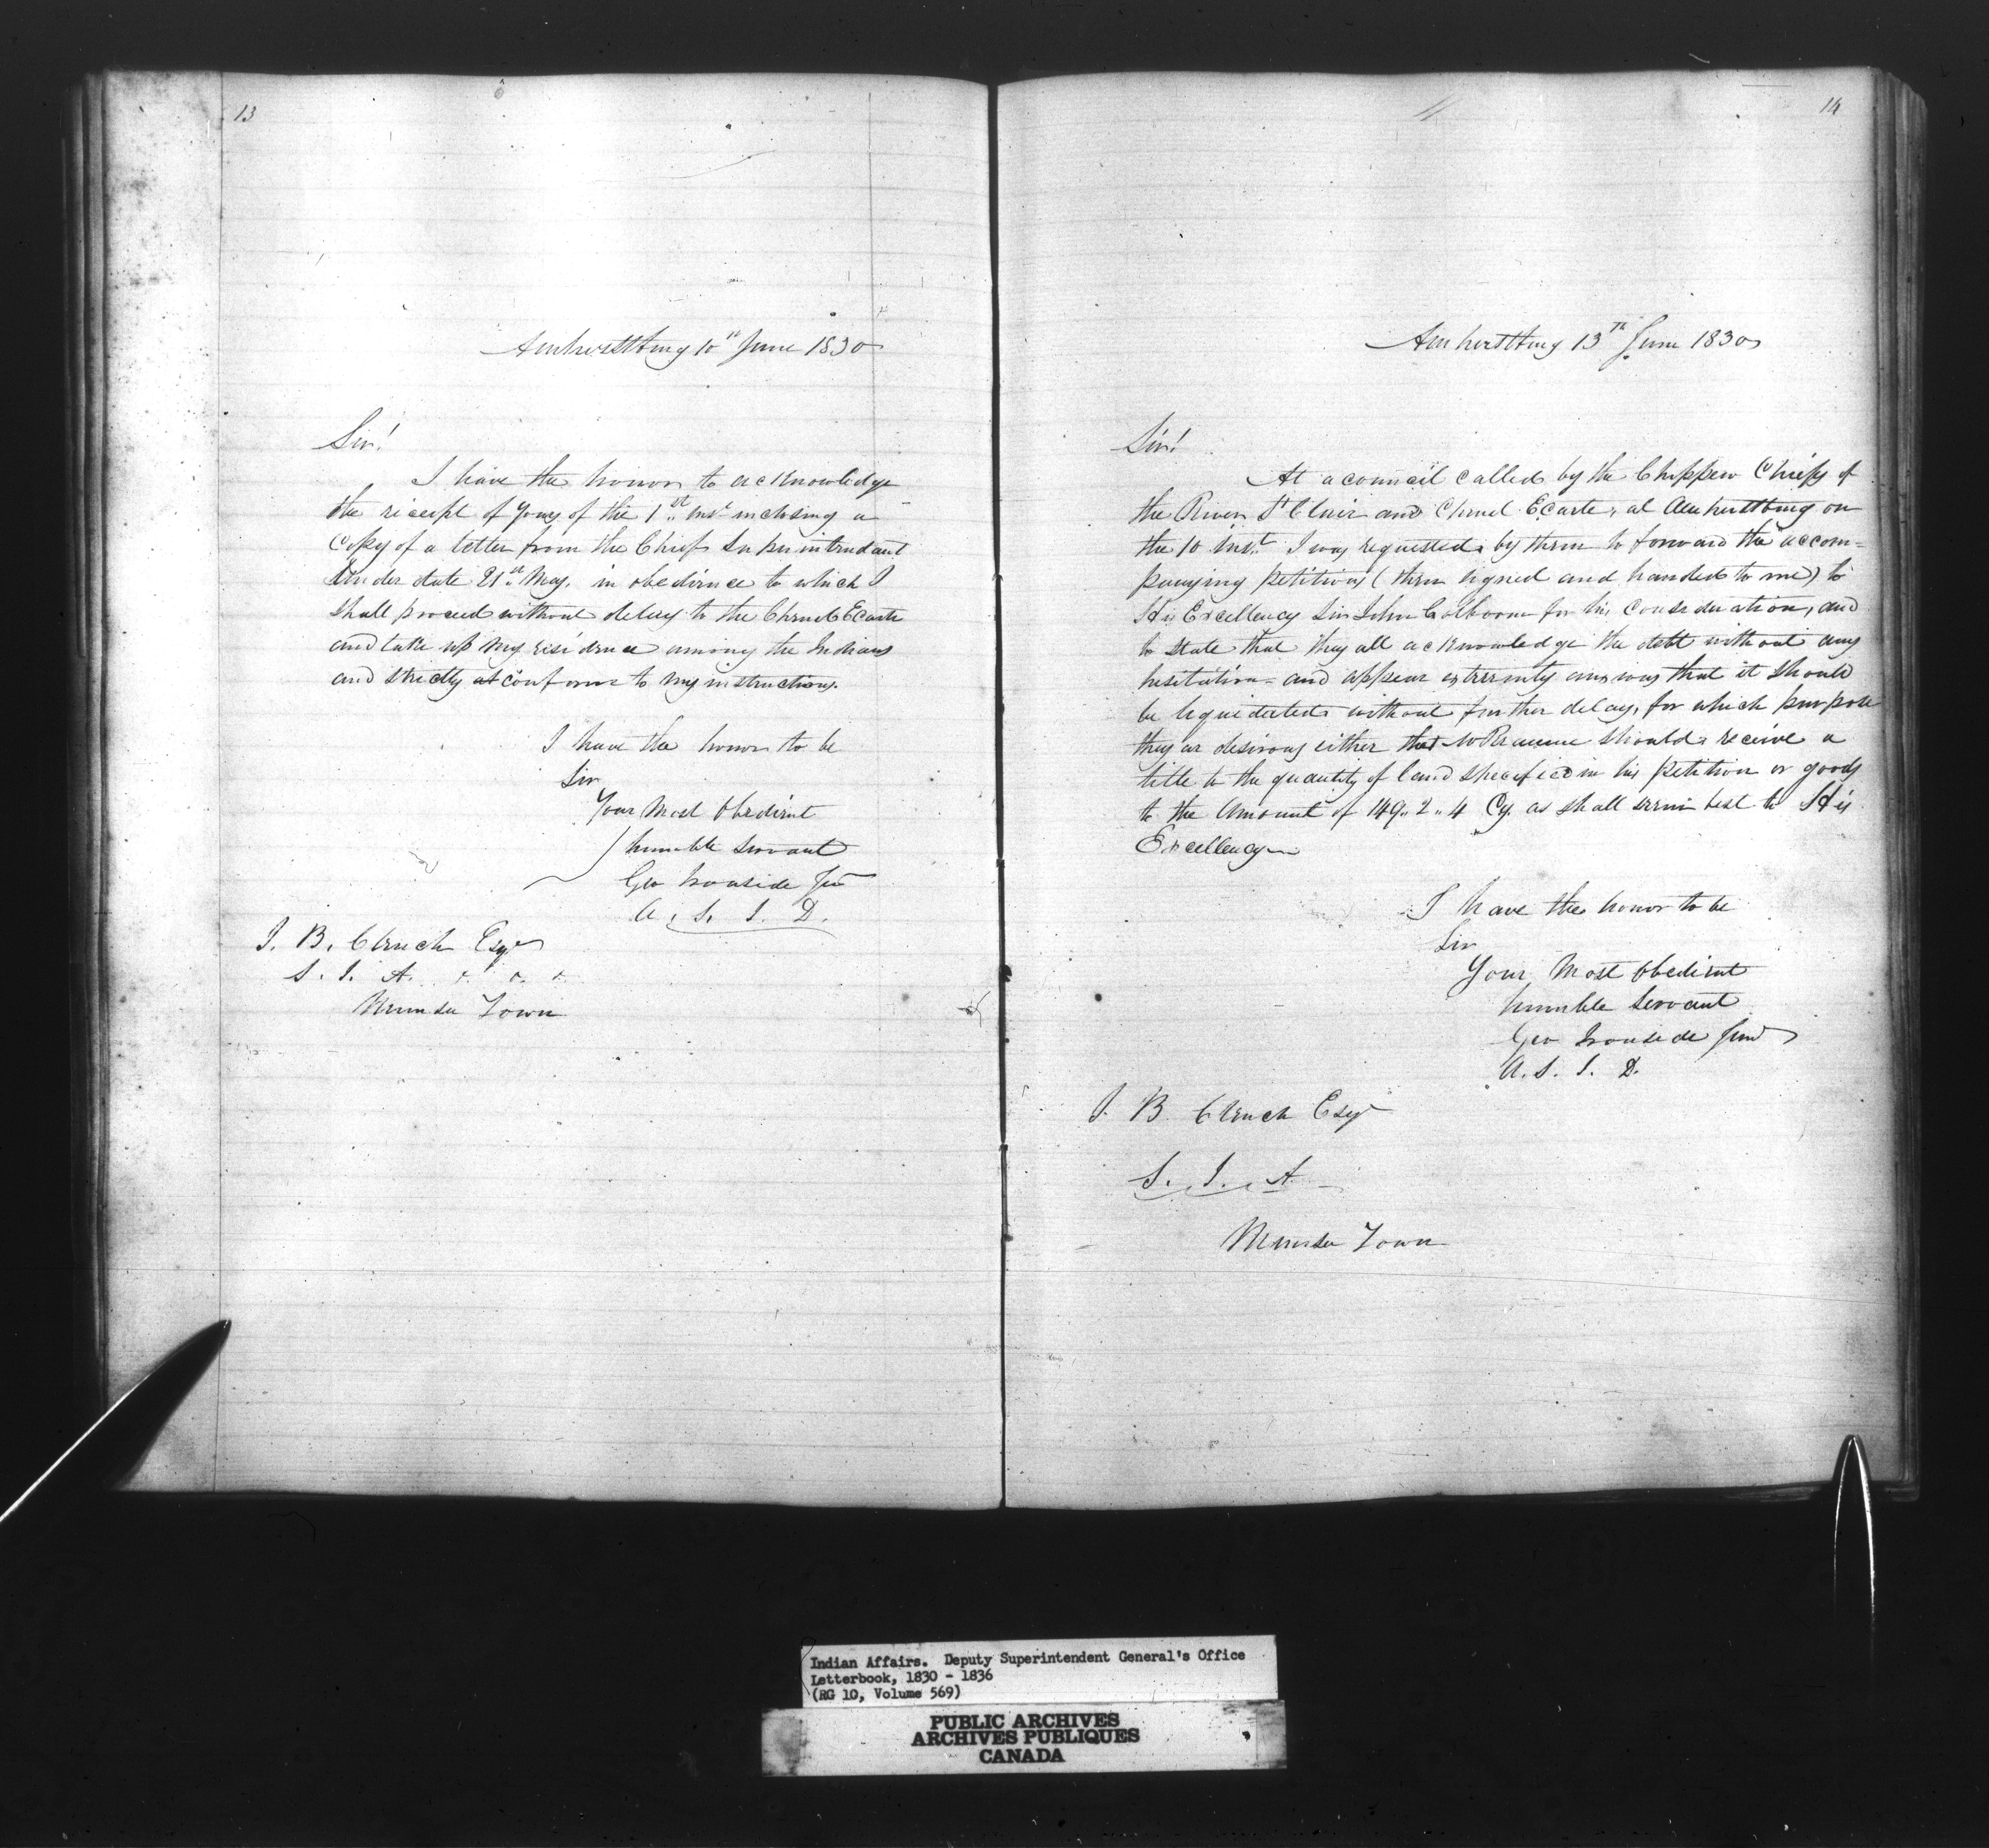 13
Amherstburg 10th June 1830
Sir!
I have the honor to acknowledge
the receipt of yours of the 1st. Inst. inclosing a
Copy of a letter from the Chief Superintendant
Under date 21st May, in obedience to which I
shall proceed without delay to the Chenal Ecarte
and take up my residence among the Indians
and strictly at conform to my instructions.
I have the honor to be
Sir
Your Most Obedient
humble Servant
Geo Ironside Jun
A. S. I. D.
J. B. Clench Esqr
S. I. A.
Munsee Town
14
Amherstburg 13th June 1830
Sir!
At a council called by the Chippew Chiefs of
the River St Clair and Chenel Ecarte, at Amherstburg on
the 10 inst. I was requested by them to forward the accom=
panying petitions (then signed and handed to me) to
His Excellency Sir John Colborne for his consideration, and
to state that they all acknowledge the debt without any
hesitation= and appear extremely anxious that it should
be liquidated without further delay, for which purpose
they ar desirous either that should receive a
title to the quantity of land specified in his petition or goods
to the Amount of 149..2..4 Cy. as shall seem best to His
Excellency
I have the honor to be
Sir
Your Most Obedient
humble Servant
Geo Ironside Junr
A. S. I. D.
J. B Clench Esqr
S. I. A
Munsee Town
Indian Affairs. Deputy Superintendent General's Office
Letterbook, 1830 - 1836
(RG 10, Volume 569)
PUBLIC ARCHIVES
ARCHIVES PUBLIQUES
CANADA